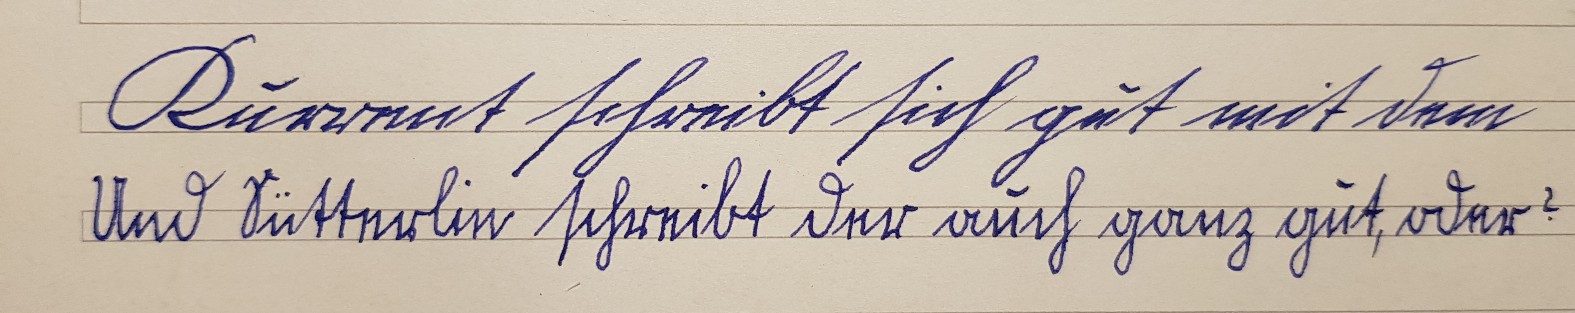 Kurrent schreibt sich gut mit dem
Und Sütterlin schreibt der auch ganz gut, oder?